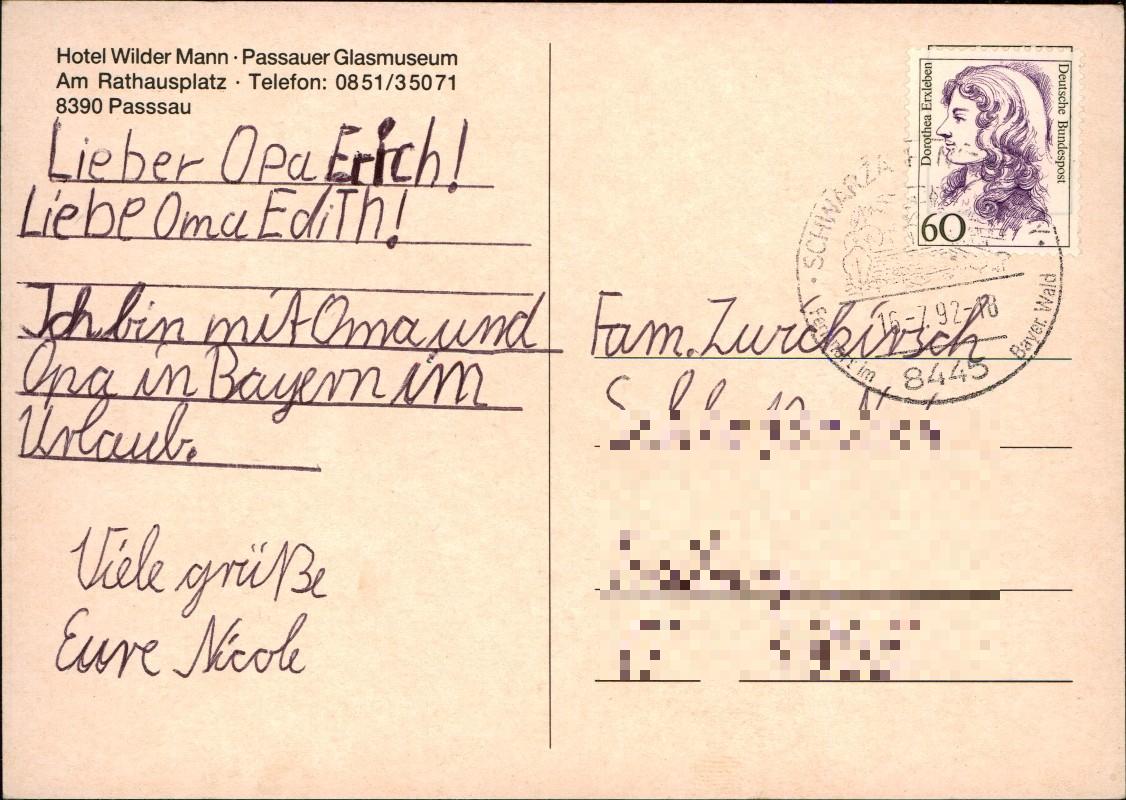 Hotel Wilder Mann · Passauer Glasmuseum
Am Rathausplatz · Telefon: 0851/35071
8390 Passsau
Lieber Opa Erich!
Liebe Oma Edith!
Ich bin mit Oma und
Opa in Bayern im
Urlaub.
Viele grüße
Eure Nicole
Dorothea Erxleben
Deutsche Bundespost
60
SCHWARZA
16.-7.92-18
8445
Bayer. Wald
Fam. Zurckirsch